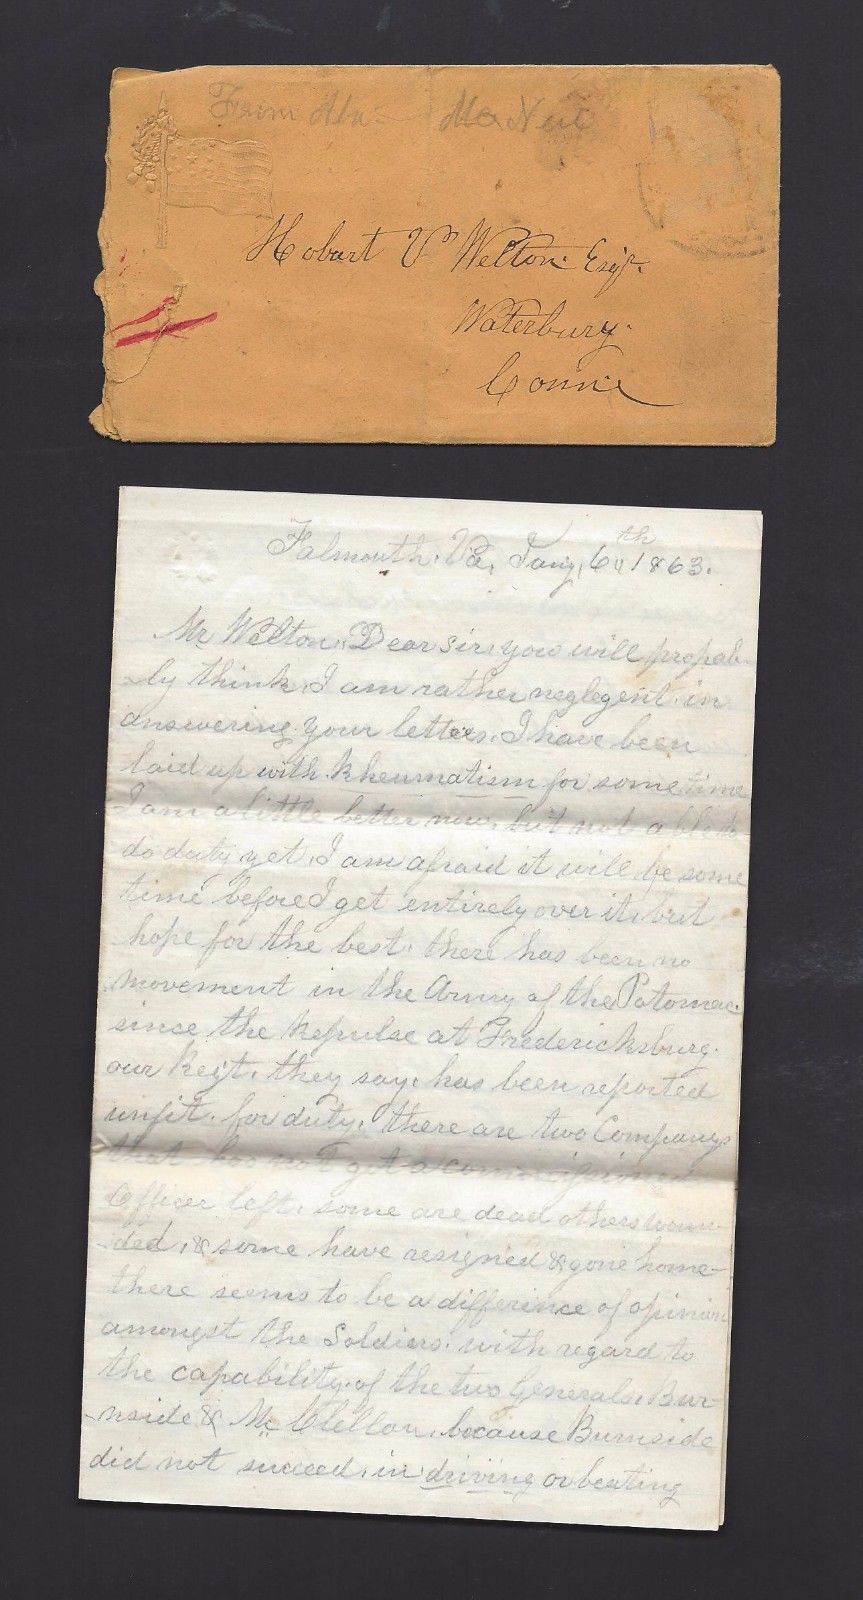 From Mc Neil
Hobart V Welton Esqr.
Waterbury.
Conn
Falmouth. Va, Jany, 6th 1863.
Mr Welton, Dear sir, you will propab-
-ly think, I am rather neglegent in
answering your letters. I have been
laid up with Rheumatism for some time
I am a little better now, but not able to
do duty yet, I am afraid it will be some
time before I get entirely over it, but
hope for the best, there has been no
movement in the Army of the Potomac
since the Repulse at Fredericksburg.
our Regt, they say, has been reported
unfit for duty, there are two Companys
that has not got a commissioned
Officer left, some are dead others woun-
-ded, & some have resigned & gone home-
there seems to be a difference of opinion
amongst the Soldiers with regard to
the capability of the two Generals, Bur-
-nside & Mc Clellan, because Burnside
did not succeed, in driving or beating